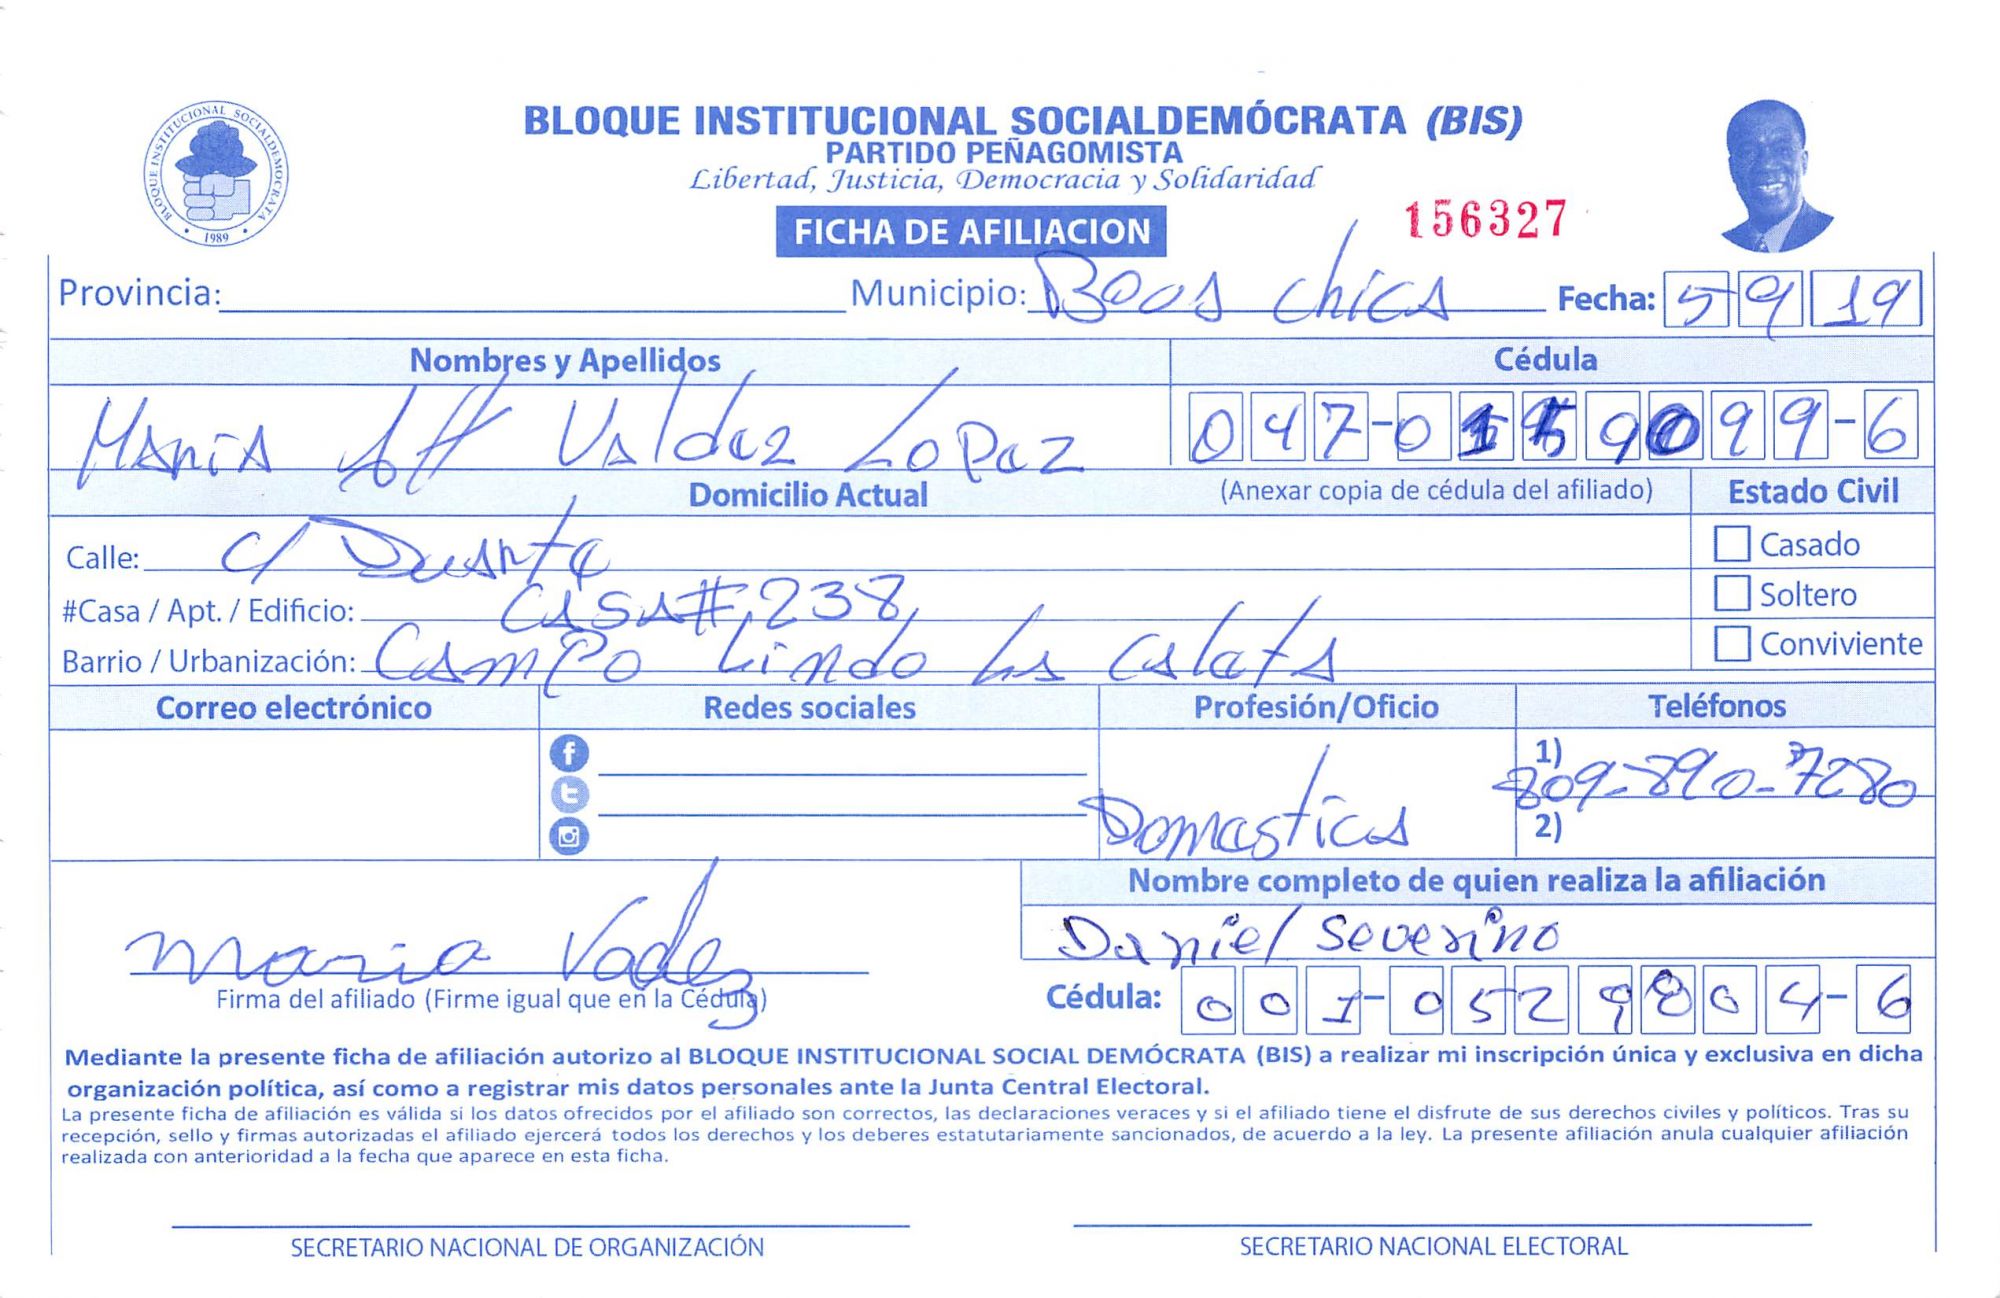 BLOQUE INSTITUCIONAL SOCIALDEMÓCRATA (BIS)
PARTIDO PEÑAGOMISTA
Libertad, Justicia, Democracia y Solidaridad
BLOQUE INSTITUCIONAL SOCIALDEMOCRATA
1989
FICHA DE AFILIACION
156327
Provincia: Municipio: Chica Fecha: 5 9 19
Nombres y Apellidos Cédula
Maria Valdez Lopez 047-0 9 99-6
Domicilio Actual (Anexar copia de cédula del afiliado) Estado Civil
Calle: C/ Duarte
Casado
#Casa / Apt. / Edificio: Casa # 238
Soltero
Barrio / Urbanización: Campo Lindo La Caleta
Conviviente
Correo electrónico Redes sociales Profesión/Oficio Teléfonos
1) 809-890-7280
Domestica
2)
Nombre completo de quien realiza la afiliación
Daniel Severino
Maria Vadez
Firma del afiliado (Firme igual que en la Cédula)
Cédula: 001-0529804-6
Mediante la presente ficha de afiliación autorizo al BLOQUE INSTITUCIONAL SOCIAL DEMÓCRATA (BIS) a realizar mi inscripción única y exclusiva en dicha
organización política, así como a registrar mis datos personales ante la Junta Central Electoral.
La presente ficha de afiliación es válida si los datos ofrecidos por el afiliado son correctos, las declaraciones veraces y si el afiliado tiene el disfrute de sus derechos civiles y políticos. Tras su
recepción, sello y firmas autorizadas el afiliado ejercerá todos los derechos y los deberes estatutariamente sancionados, de acuerdo a la ley. La presente afiliación anula cualquier afiliación
realizada con anterioridad a la fecha que aparece en esta ficha.
SECRETARIO NACIONAL DE ORGANIZACIÓN SECRETARIO NACIONAL ELECTORAL